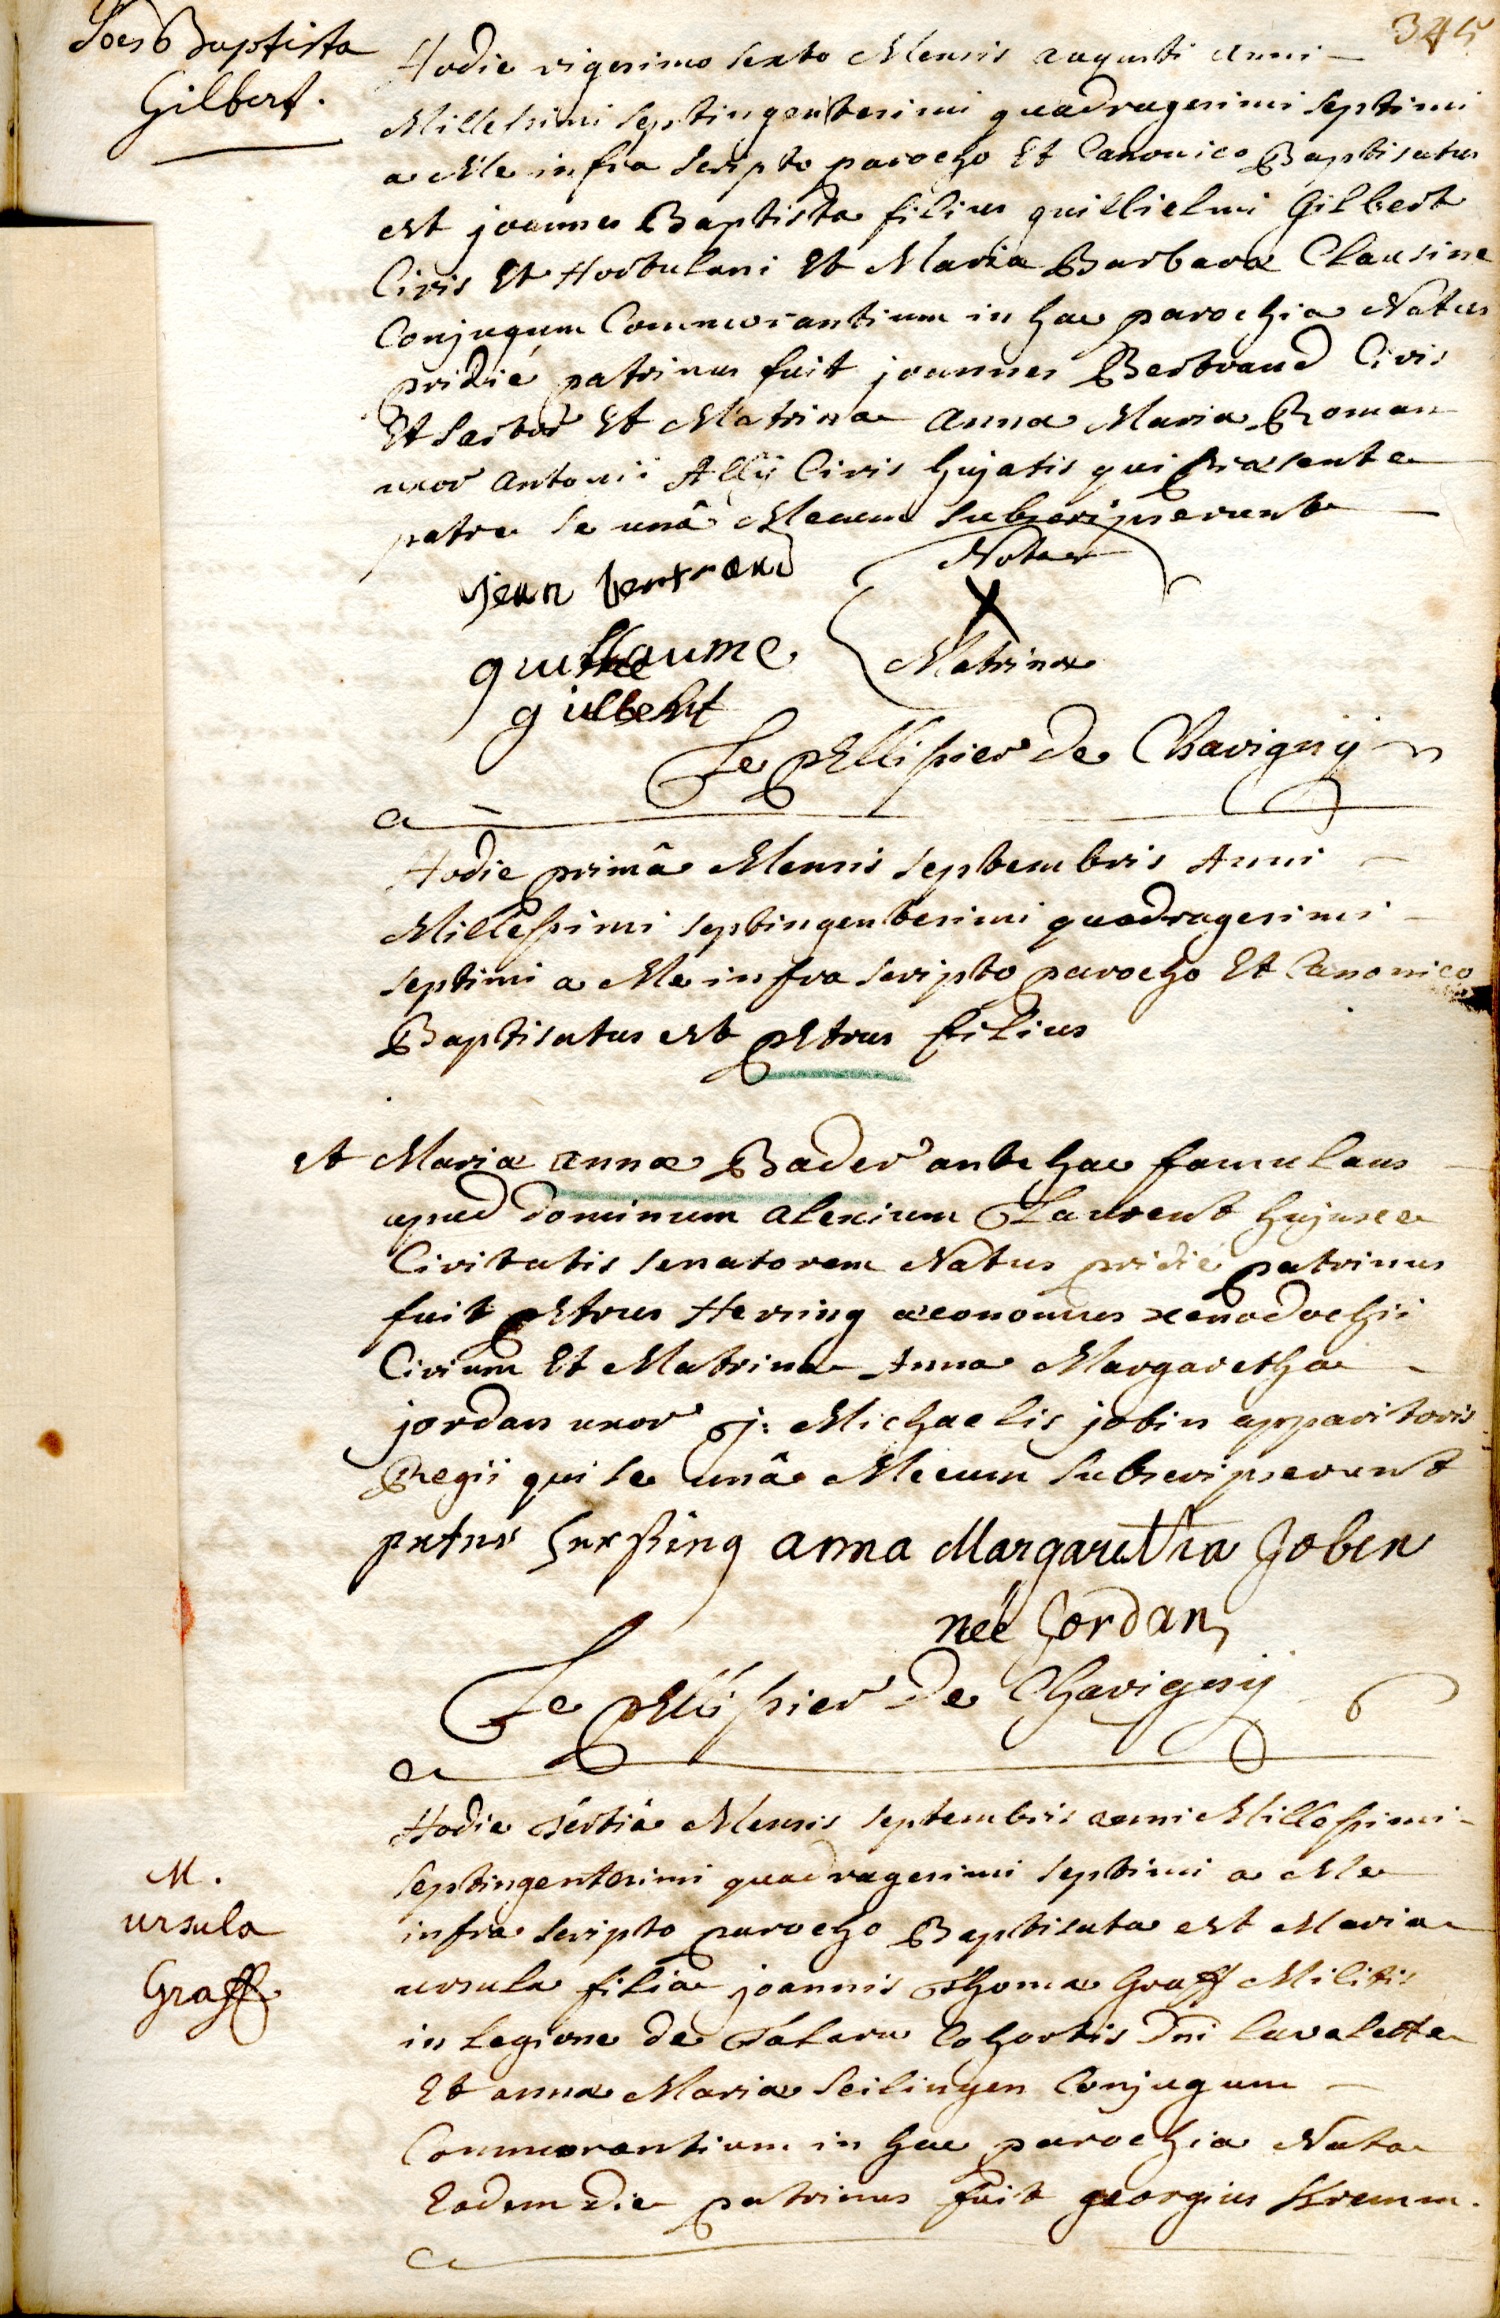 345
Joes Baptista
Gilbert.
Hodie vigesimo sexto Mensis augusti anni
Millessimi septingentesimi quadragesimi septimi
a Me infra scripto parocho Et Canonico Baptisatus
est joannes Baptista filius guillielmi Gilbert
Civis Et Hortulani Et Maria Barbara Clausine
Conjugum Commorantium in hac parochia Natus
pridie patrinus fuit joannes Bertrand Civis
Et sartor Et Matrina Anna Maria Roman
uxor antonii Ally Civis hujatis qui praesente
patre se unâ Mecum subscripserunt
Nota
jean bertrand
X
guillaume
Matrinae
gilbert
Le pellissier de Chavigny
Hodie primâ Mensis septembris Anni
Millessimi septingentesimi quadragesimi
septimi a Me infra scripto parocho Et Canonico
Baptisatus est petrus filius
et Maria anna Bader ante hac famulans
apud dominum alexium Laurent hujusce
Civitatis senatorem Natus pridie patrinus
fuit petrus Hersing œconomus xenodochii
Civium Et Matrina Anna Margaretha
jordan uxor j: Michaelis jobin apparitoris
Regii qui se unâ Mecum subscripserunt
petrus hersing anna Margaretha Jobin
née Jordan
Le pellissier de Chavigny
M.
ursula
Graff
Hodie tertiâ Mensis septembris anni Millessimi
septingentesimi quadragesimi septimi a Me
infra scripto parocho Baptisata est Maria
ursula filia joannis Thoma Graff Militis
in legione de Cohortis Dni lavalette
Et anna Maria Seilingen Conjugum
Commorantium in hac parochia Nata
Eadem die patrinus fuit georgius Kremm.